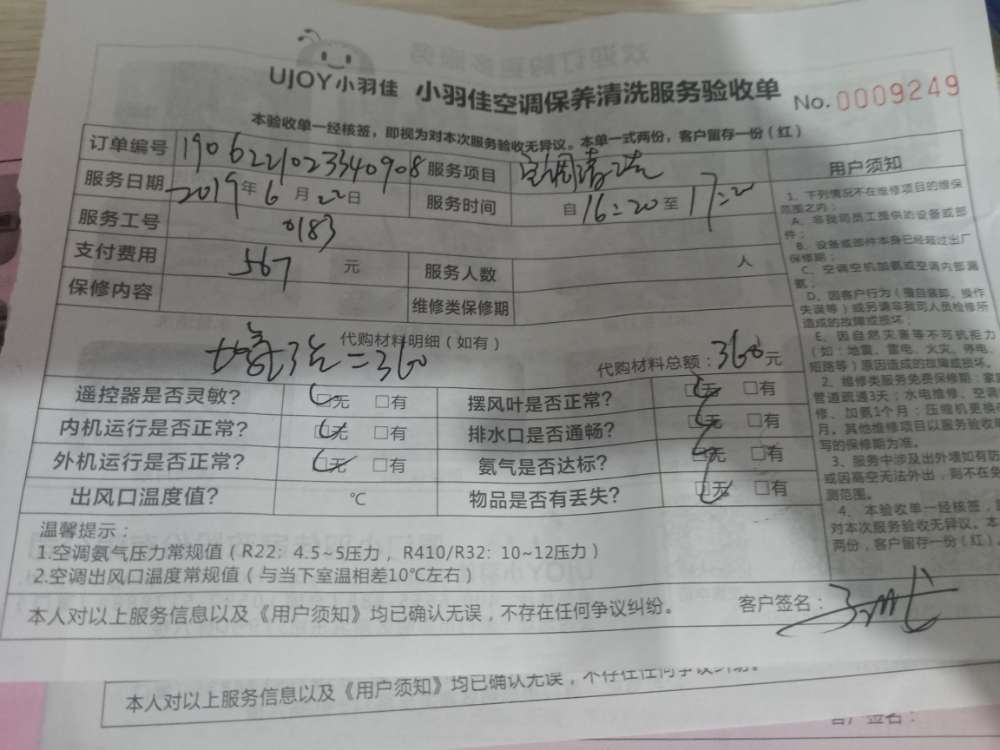 UJOY小羽佳 小羽佳空调保养清洗服务验收单 No.0009249
本验收单一经核签，即视为对本次服务验收无异议。本单一式两份，客户留存一份（红）
订单编号 1906221023340908 服务项目 空调清洗
服务日期 2019年6月22日 服务时间 自16:20至17:20
服务工号 0183
支付费用 567元 服务人数 人
保修内容 维修类保修期
代购材料明细（如有）
=360 代购材料总额：360元
遥控器是否灵敏? □无 □有 摆风叶是否正常? □无 □有
内机运行是否正常? □无 □有 排水口是否通畅? □无 □有
外机运行是否正常? □无 □有 氨气是否达标? □无 □有
出风口温度值? ℃ 物品是否有丢失? □无 □有
温馨提示：
1.空调氨气压力常规值（R22：4.5~5压力，R410/R32：10~12压力）
2.空调出风口温度常规值（与当下室温相差10℃左右）
本人对以上服务信息以及《用户须知》均已确认无误，不存在任何争议纠纷。 客户签名：
用户须知
1、下列情况不在维修项目的维保
范围之内：
A、非我司员工提供的设备或部
件；
B、设备或部件本身已经超过出厂
保修期；
C、空调空机加氨或空调内部漏
氨；
D、因客户行为（擅自装卸、操作
失误等）或另请非我司人员检修所
造成的故障或损坏；
E、因自然灾害等不可抗拒力
（如：地震、雷电、火灾、停电、
短路等）原因造成的故障或损坏。
2、维修类服务免费保修期：家庭
管道疏通3天；水电维修、空调
修、加氨1个月；压缩机更换
月。其他维修项目以服务验收单
写的保修期为准。
3、服务中涉及出外墙如有防
或因高空无法外出，则不在免
测范围。
4、本验收单一经核签，
对本次服务验收无异议。本
两份，客户留存一份（红）。
本人对以上服务信息以及《用户须知》均已确认无误，不存在任何争议纠纷。
客户签名：